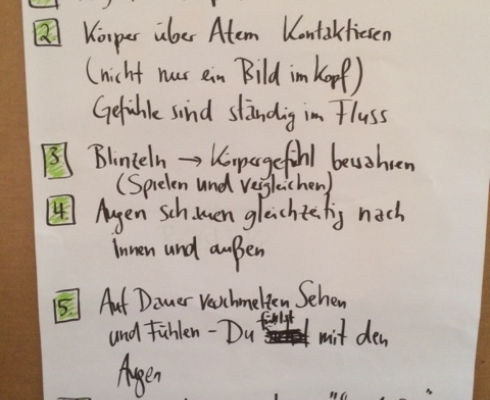 2. Körper über Atem Kontaktieren
(nicht nur ein Bild im Kopf)
Gefühle sind ständig im Fluss
3. Blinzeln → Körpergefühl bewahren
(Spielen und vergleichen)
4. Augen schauen gleichzeitig nach
Innen und außen
5. Auf Dauer verschmelzen Sehen
und Fühlen - Du fühlst mit den
Augen